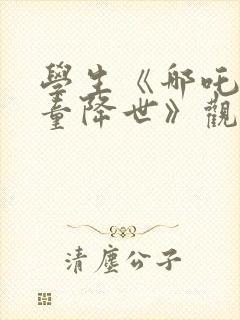 學生《哪吒
童降世》觀
清塵公子